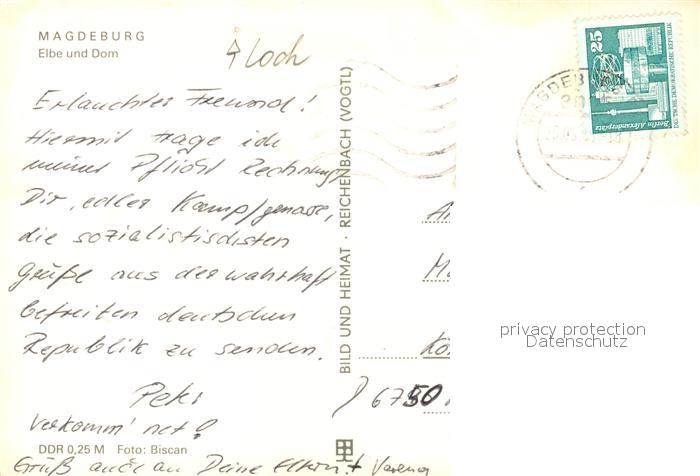 MAGDEBURG
Elbe und Dom
Loch
Erlauchter Freund!
Hiermit trage ich
meiner Pflicht Rechnung
Dir, edler Kampfgenosse,
die sozialistischsten
Grüße aus der wahrhaft
befreiten deutschen
Republik zu senden.
Peter
Verkomm' net!
DDR 0,25 M Foto: Biscan
Gruß auch an Deine Eltern + Verena
BILD UND HEIMAT · REICHENBACH (VOGTL)
25
Berlin Alexanderplatz
DEUTSCHE DEMOKRATISCHE REPUBLIK
MAGDEB
D 6750
privacy protection
Datenschutz